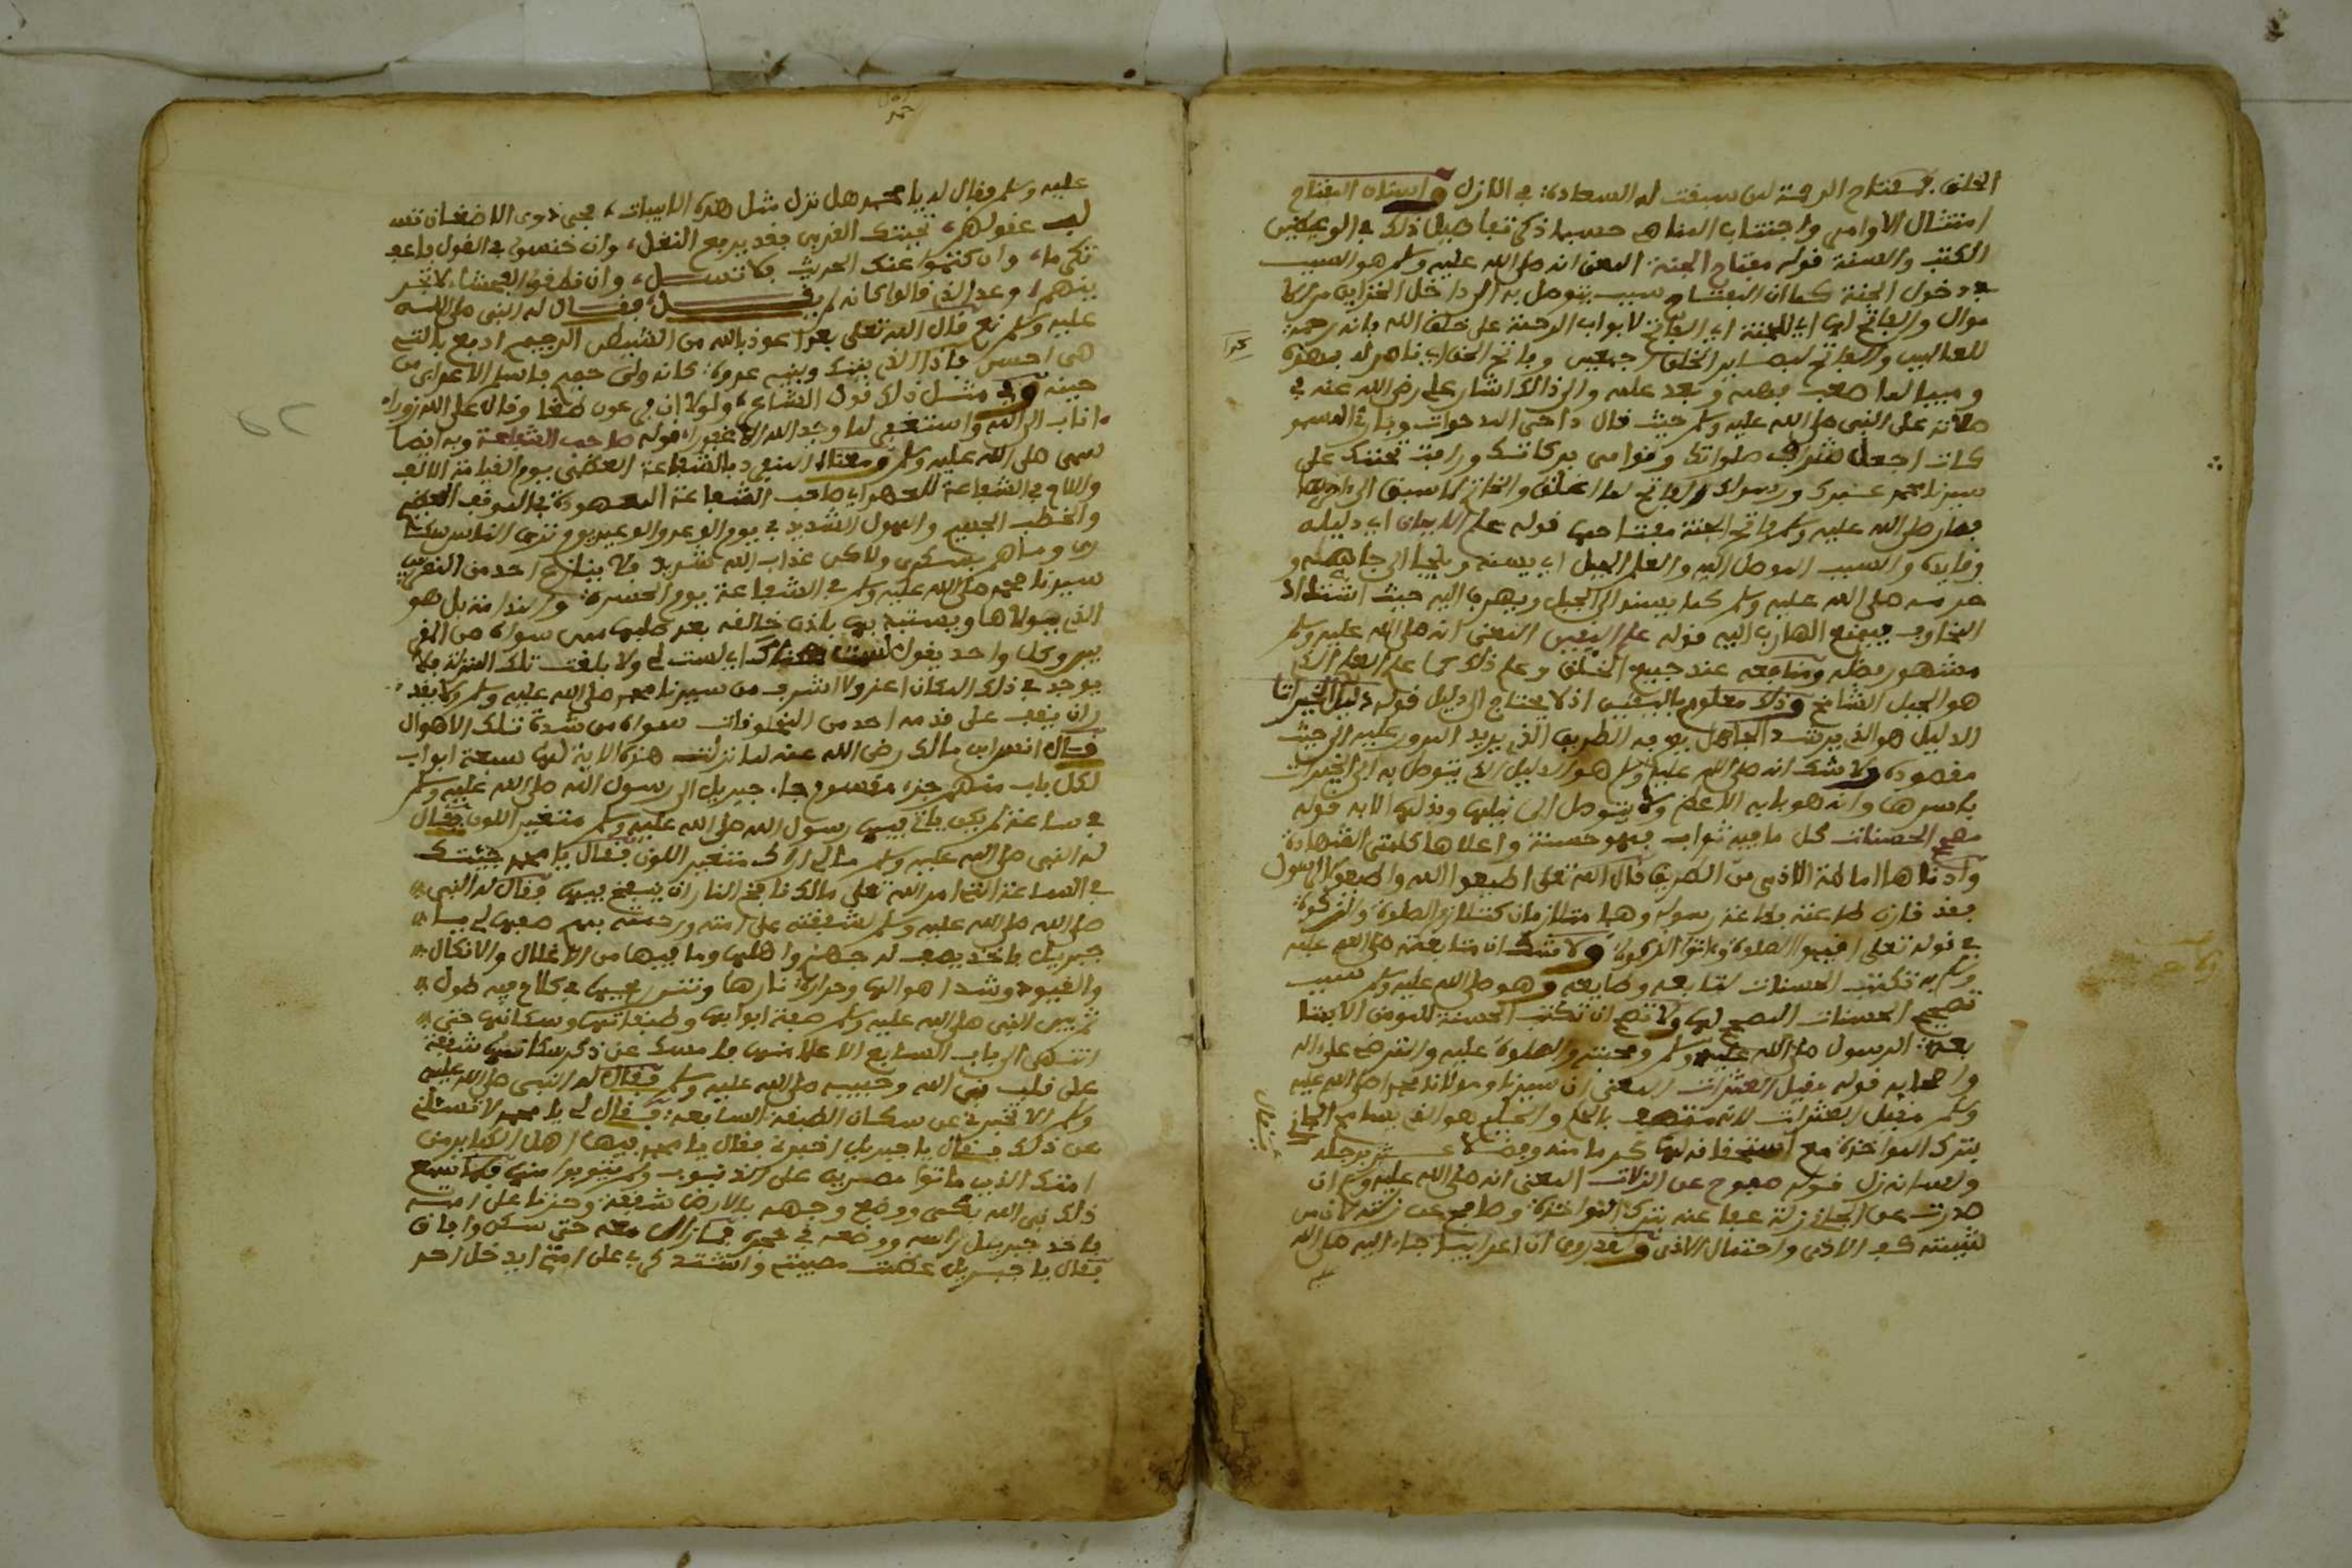 الخلق بمفتاح الرحمة لمن سبقت له السعادة في الازل واسنان المفتاح
امتثال الاوامر واجتناب المناهي حسبما ذكر تفاصيل ذلك في
الكتب والسنة قوله مفتاح الجنة المعنى انه صلى الله عليه وسلم هو السبب
في دخول الجنة كما ان المفتاح سبب يتوصل به الى داخل الخزاين من
موال والفاتح لها اي للجنة اي الفاتح لابواب الرحمة على خلق الله فانه رحمة
للعالمين والفاتح لبصاير الخلق اجمعين وفاتح الحق اي ناصر له
ومبينا لما صعب فهمه وبعد علمه والى ذالك اشار علي رضي الله عنه في
صلاته على النبي صلى الله عليه وسلم حيث قال داحي المدحوات وباري المسمو
كات اجعل شرايف صلواتك ونوامي بركاتك ورافة تحننك على
سيدنا محمد عبدك ورسولك الفاتح لما اغلق والخاتم لما سبق
فصار صلى الله عليه وسلم فاتح الجنة مفتاحها قوله علم الايمان اي دليله
وقايده والسبب الموصل اليه والعلم الجبل اي
صلى الله عليه وسلم كما يستند الى الجبل ويهرب اليه حيث اشتداد
المخاوف فيمنع الهارب اليه قوله علم اليقين المعنى انه صلى الله عليه وسلم
مشهور فضله ومنافعه عند جميع الخلق وعلم ذلك كما علم العلم الذي
هو الجبل الشامخ وذلك معلوم باليقين اذ لا يحتاج الى دليل قوله دليل الخيرات
الدليل هو الذي يرشد الجاهل بوجه الطريق الذي يريد المرور عليه الى حيث
مقصوده ولا شك انه صلى الله عليه وسلم هو الدليل الذي يتوصل به الى الخيرات
باسرها وانه هو بابه الاعظم ولا يتوصل الى نيلها وبذلها الا به قوله
مصحح الحسنات كل ما فيه ثواب فهو حسنة واعلاها كلمتي الشهادة
وادناها اماطة الاذى من الطريق قال الله تعلى اطيعوا الله واطيعوا الرسول
فقد قارن طاعته بطاعة رسوله وهما متلازمان كتلازم الصلوة والزكوة
في قوله تعلى اقيموا الصلوة واتوا الزكوة ولا شك ان متابعته صلى الله عليه
وسلم به تكتب الحسنات لمتابعه وطايعه وهو صلى الله عليه وسلم سبب
تصحيح الحسنات المصحح لها ولا تصح ان تكتب الحسنة للمومن الا
الرسول صلى الله عليه وسلم ومحبته والصلوة عليه والترضي على اله
واصحابه قوله مقيل العثرات المعنى ان سيدنا ومولانا محمدا صلى الله عليه
وسلم مقيل العثرات لانه متصف بالحلم والحليم هو الذي يسامح الجاني
بترك المواخذة مع استحقاقه لها كرما منه وفضلا
ولسانه زل قوله صفوح عن الزلات المعنى انه صلى الله عليه وسلم ان
صدرت من الجاني زلة عفا عنه بترك المواخذة وصفح عن زلته لان من
شيمته كف الاذى واحتمال الاذى وقد روي ان اعرابيا جاء اليه صلى الله
عليه وسلم فقال له يا محمد هل نزل مثل هذه الابيات محيي ذوي الاضغان تسب
عقولهم تحيتك القربى فقد يرفع النغل وان خنسوا في القول فاعف
تكرما وان كتموا عنك الحديث فلا تسل وان
وعد الذي قالوا كانه لم يقل فقال له النبي صلى الله
عليه وسلم نعم قال الله تعلى بعد اعوذ بالله من الشيطن الرجيم ادفع بالتي
هي احسن فاذا الذي بينك وبينه عدوة كانه ولي حميم فاسلم الاعرابي من
حينه وفي مثل ذلك قول الشاعر ولو ان فرعون طغا وقال على الله زورا
اناب الى الله واستغفر لما وجد الله الا غفورا قوله صاحب الشفاعة وبه ايضا
سمى صلى الله عليه وسلم ومعناه المنفرد بالشفاعة العظمى يوم القيامة الالف
واللام في الشفاعة للعهد اي صاحب الشفاعة المعهودة في الموقف العظيم
والخطب الجسيم والهول الشديد في يوم الوعد والوعيد يوم ترى الناس سكا
رى وما هم بسكرى ولاكن عذاب الله شديد فلا ينازع احد من
سيدنا محمد صلى الله عليه وسلم في الشفاعة يوم الحسرة والندامة بل هو
الذي يتولاها ويستبد بها باذن خالقه بعد طلبها من سواه من
وكل واحد يقول لست هناك اي لست لي ولا بلغت تلك المنزلة فلا
يوجد في ذلك المكان اعز ولا اشرف من سيدنا محمد صلى الله عليه وسلم ولا يقد
ران يقف على قدمه احد من المخلوقات سواه من شدة تلك الاهوال
قال انس ابن مالك رضي الله عنه لما نزلت هذه الاية لها سبعة ابواب
لكل باب منهم جزء مقسوم جاء جبريل الى رسول الله صلى الله عليه وسلم
في ساعة لم يكن ياتي فيها رسول الله صلى الله عليه وسلم متغير اللون فقال
له النبي صلى الله عليه وسلم ما لي اراك متغير اللون فقال يا محمد جئتك
في الساعة التي امر الله تعلى مالك نافخ النار ان ينفخ فيها فقال له النبي
صلى الله صلى الله عليه وسلم لشفقته على امته ورحمته بهم صفها لي يا
جبريل فاخذ يصف له جهنم واهلها وما فيها من الاغلال والانكال
والقيود وشد اهوالها وحرارة نارها في كلام فيه طول
ثم بين النبي صلى الله عليه وسلم صفة ابوابها وطبقاتها وسكانها حتى
انتهى الى باب السابع الاعلا منها فامسك عن ذكر سكانها شفقة
على قلب نبي الله وحبيبه صلى الله عليه وسلم فقال له النبي صلى الله عليه
وسلم الا تخبرني عن سكان الطبقة السابعة فقال لي يا محمد لا تسئلني
عن ذلك فقال يا جبريل اخبرني فقال يا محمد فيها اهل الكباير من
امتك الذين ماتوا مصرين على الذنوب ولم يتوبوا منها فلما سمع
ذلك نبي الله بكى ووضع وجهه بالارض شفقة وحزنا على امته
فاخذ جبريل راسه ووضعه في حجره فما زال معه حتى سكن وافاق
فقال يا جبريل عظمت مصيبتي واشتد كربي على امتي ايدخل احد